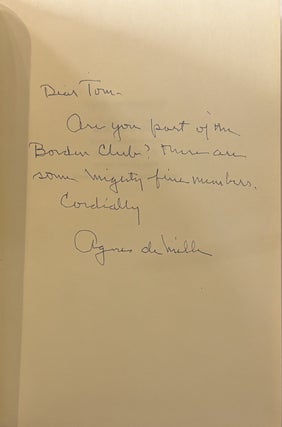 Dear Tom-
Are you part of the
Borden Club? There are
some mighty fine numbers.
Cordially
Agnes de Mille